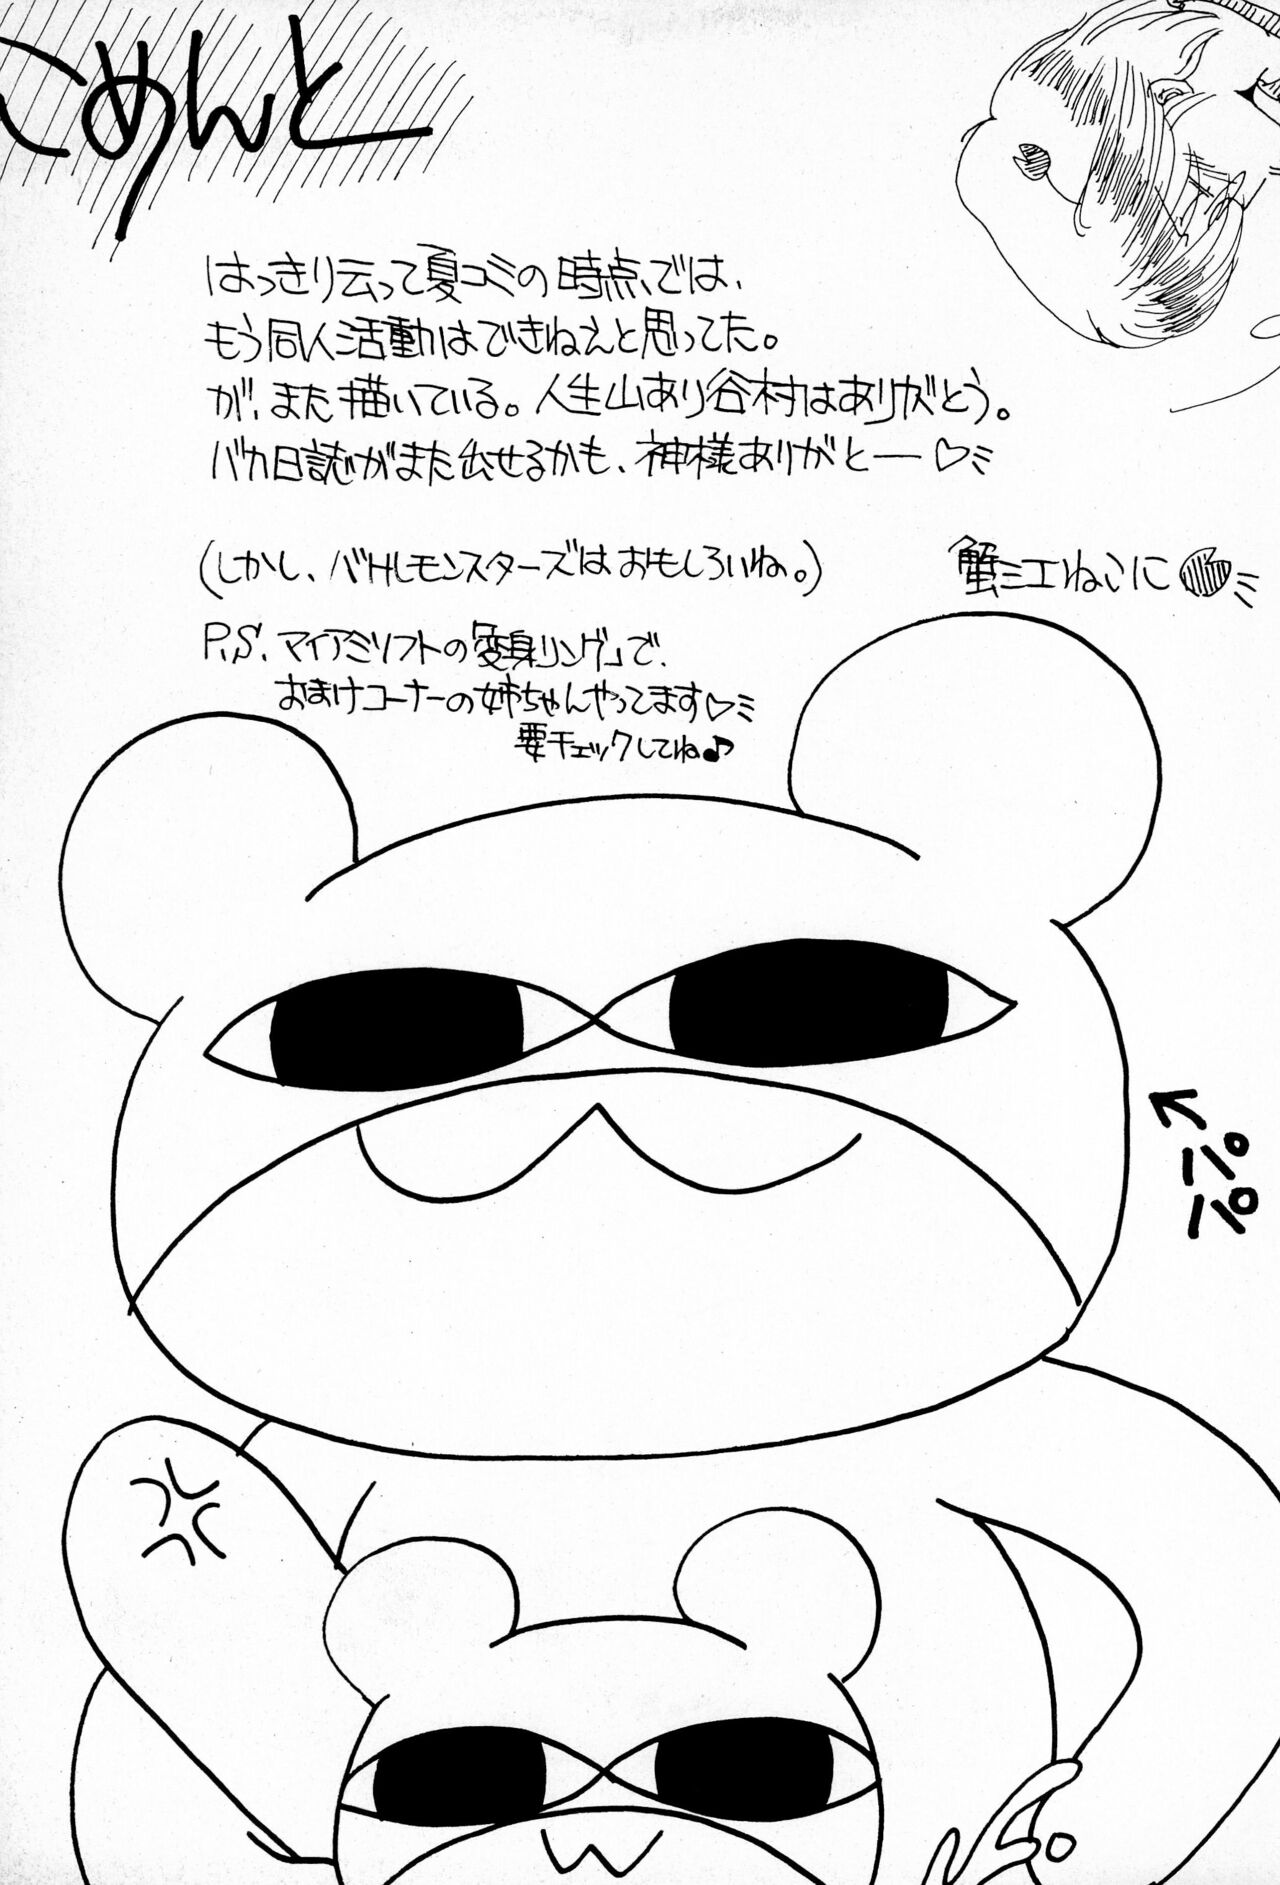 こめんと
はっきり云って夏コミの時点では、
もう同人活動はできねえと思ってた。
が、また描いている。人生山あり谷村はありがとう。
バカ日誌がまた出せるかも、神様ありがとー♡ミ
(しかし、バHLモンスターズはおもしろいね。)
蟹ミエねこに
P.S. マイアミソフトの「変身リング」で、
おまけコーナーの姉ちゃんやってます♡ミ
要チェックしてね♪